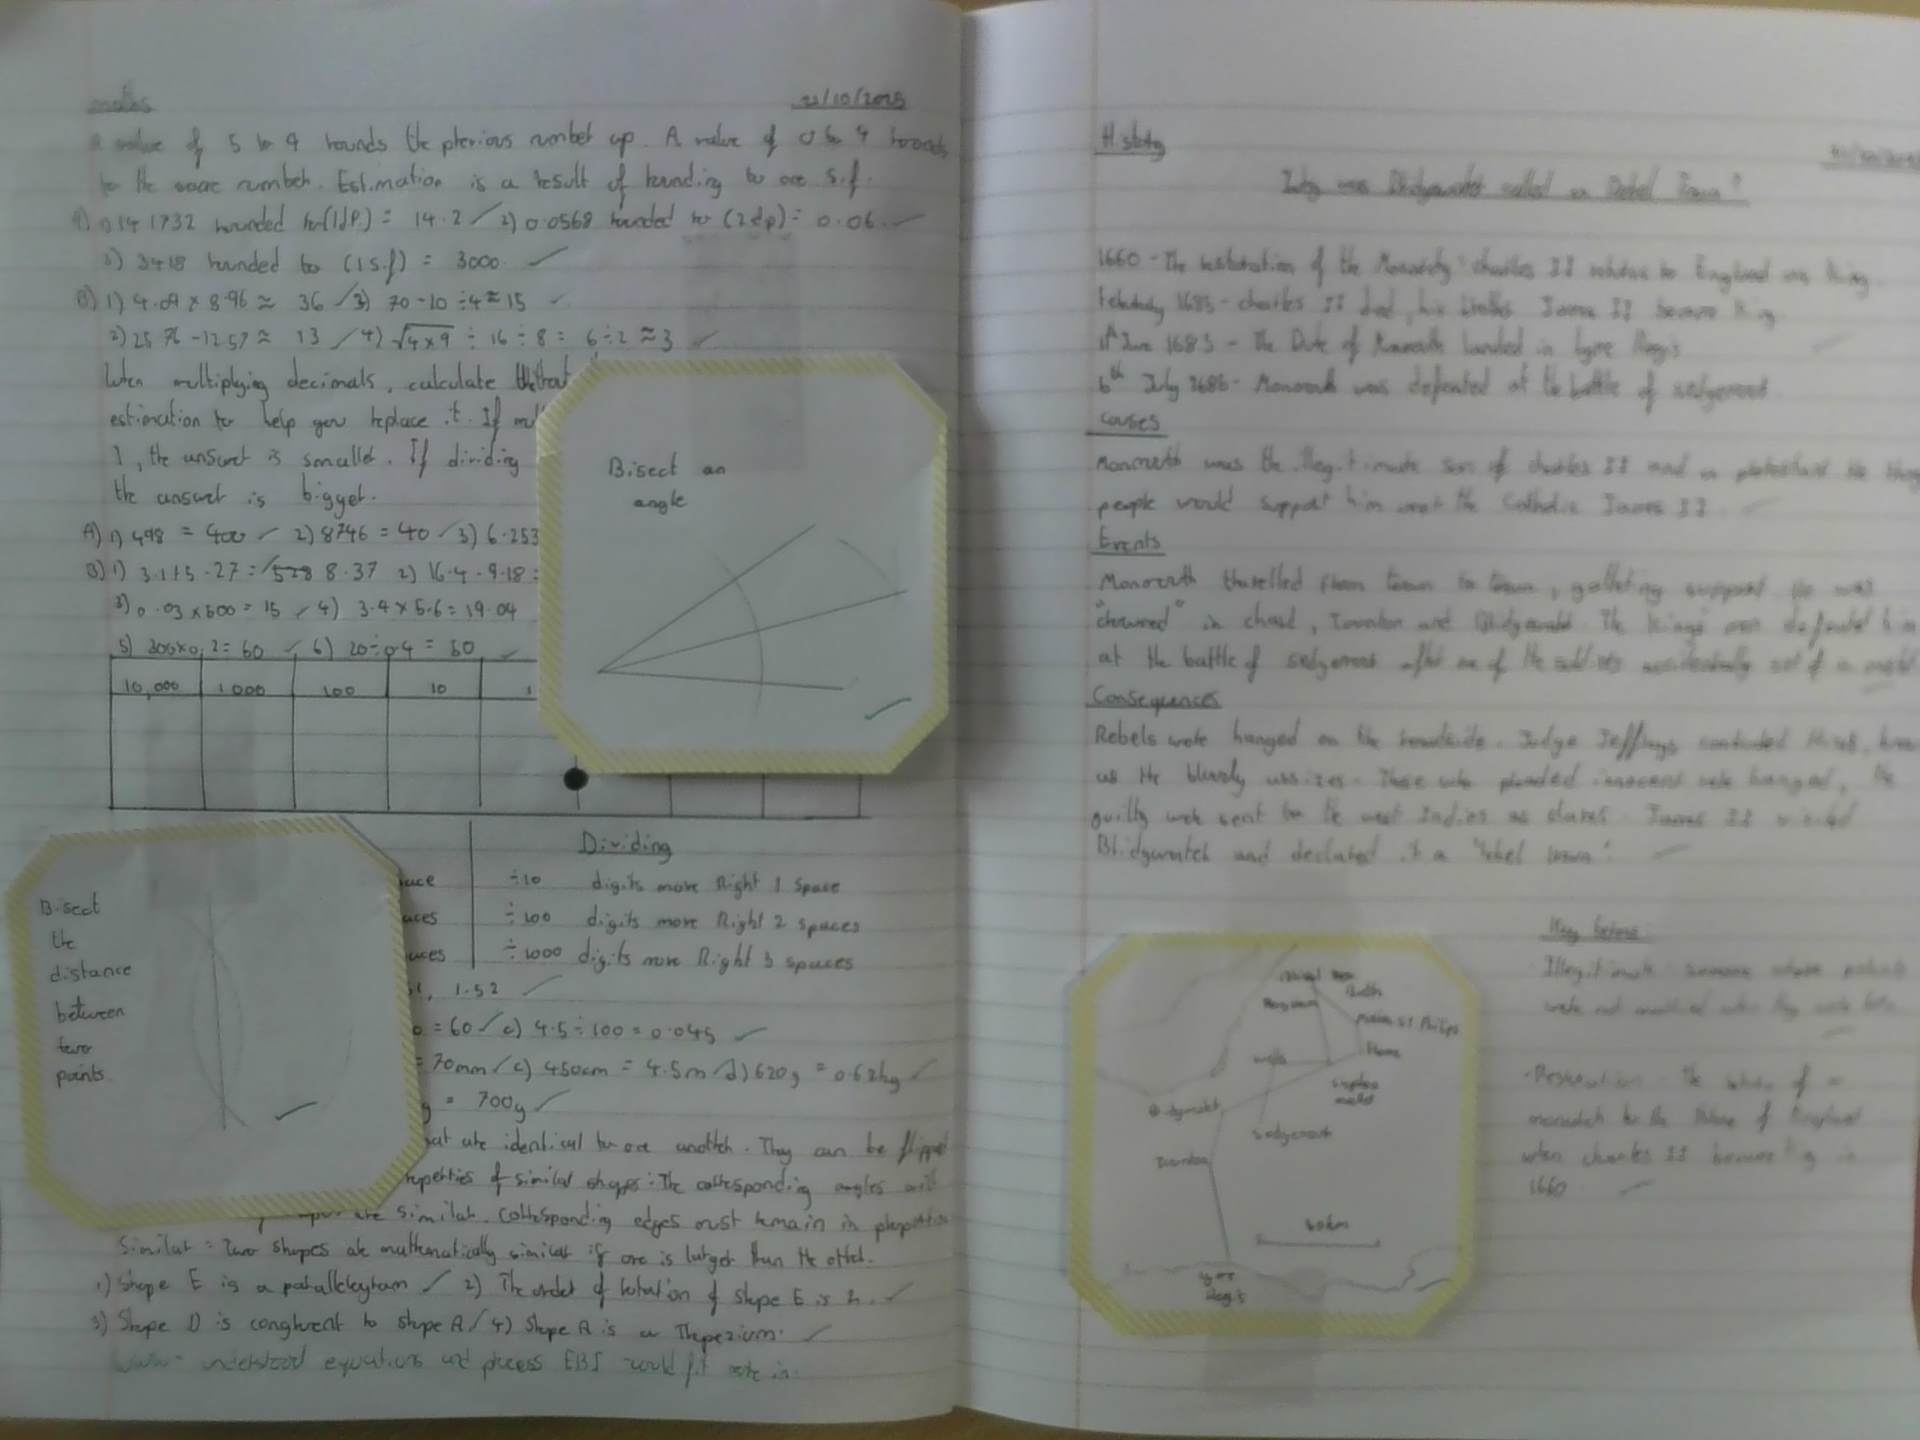 maths
21/10/2025
A value of 5 to 9 rounds the previous number up. A value of 0 to 4 rounds
to the same number. Estimation is a result of rounding to one s.f.
A) 1) 14.1732 rounded to (1dp.) = 14.2 2) 0.0568 rounded to (2dp) = 0.06
3) 3418 rounded to (1 s.f) = 3000
B) 1) 4.09 x 8.96 ≈ 36 3) 70-10 ÷4 ≈ 15
2) 25.76 - 12.57 ≈ 13 4) √4x9 ÷ 16 ÷ 8 = 6÷2 ≈ 3
When multiplying decimals, calculate without
estimation to help you replace it. If
1, the answer is smaller. If dividing
the answer is bigger.
A) 1) 498 = 400 2) 8746 = 40 3) 6.253
B) 1) 3.1+5.27 = 8.37 2) 16.4-9.18 =
3) 0.03 x 500 = 15 4) 3.4 x 5.6 = 19.04
5) 300 x 0.2 = 60 6) 20÷0.4 = 50
10,000 1000 100 10 1
Bisect an
angle
Dividing
÷10 digits move Right 1 space
÷100 digits move Right 2 spaces
÷1000 digits move Right 3 spaces
Bisect
the
distance
between
two
points
1.52
= 60 c) 4.5 ÷ 100 = 0.045
= 70mm c) 450cm = 4.5m d) 620g = 0.62kg
= 700g
that are identical to one another. They can be flipped
properties of similar shapes: The corresponding angles will
are similar. Corresponding edges must remain in proportion
Similar = Two shapes are mathematically similar if one is larger than the other.
1) Shape E is a parallelogram 2) The order of rotation of shape E is 2.
3) Shape D is congruent to shape A 4) Shape A is a Trapezium.
www- understood equations and process EBI could fit more in
History
Why was Bridgwater called a Rebel Town?
1660 - The restoration of the Monarchy. Charles II returns to England as King
February 1685 - Charles II died, his brother James II became King
11th June 1685 - The Duke of Monmouth landed in Lyme Regis
6th July 1685 - Monmouth was defeated at the battle of sedgemoor
Causes
Monmouth was the illegitimate son of Charles II and a protestant. He
people would support him over the Catholic James II.
Events
Monmouth travelled from town to town, gathering support. He was
"crowned" in chard, Taunton and Bridgwater. The Kings men defeated him
at the battle of sedgemoor after one of the soldiers accidentally set of a
Consequences
Rebels were hanged on the roadside. Judge Jeffreys
as the bloody assizes. Those who pleaded innocent were hanged, the
guilty were sent to the west Indies as slaves. James II visited
Bridgwater and declared it a "rebel town".
Key terms
Illegitimate - someone whose parents
were not married when they were born
Restoration - The return of a
monarch to the throne of England
when Charles II became King in
1660
Bath
Philips
Frome
wells
shepton
mallet
Bridgwater
Sedgemoor
Taunton
Lyme
Regis